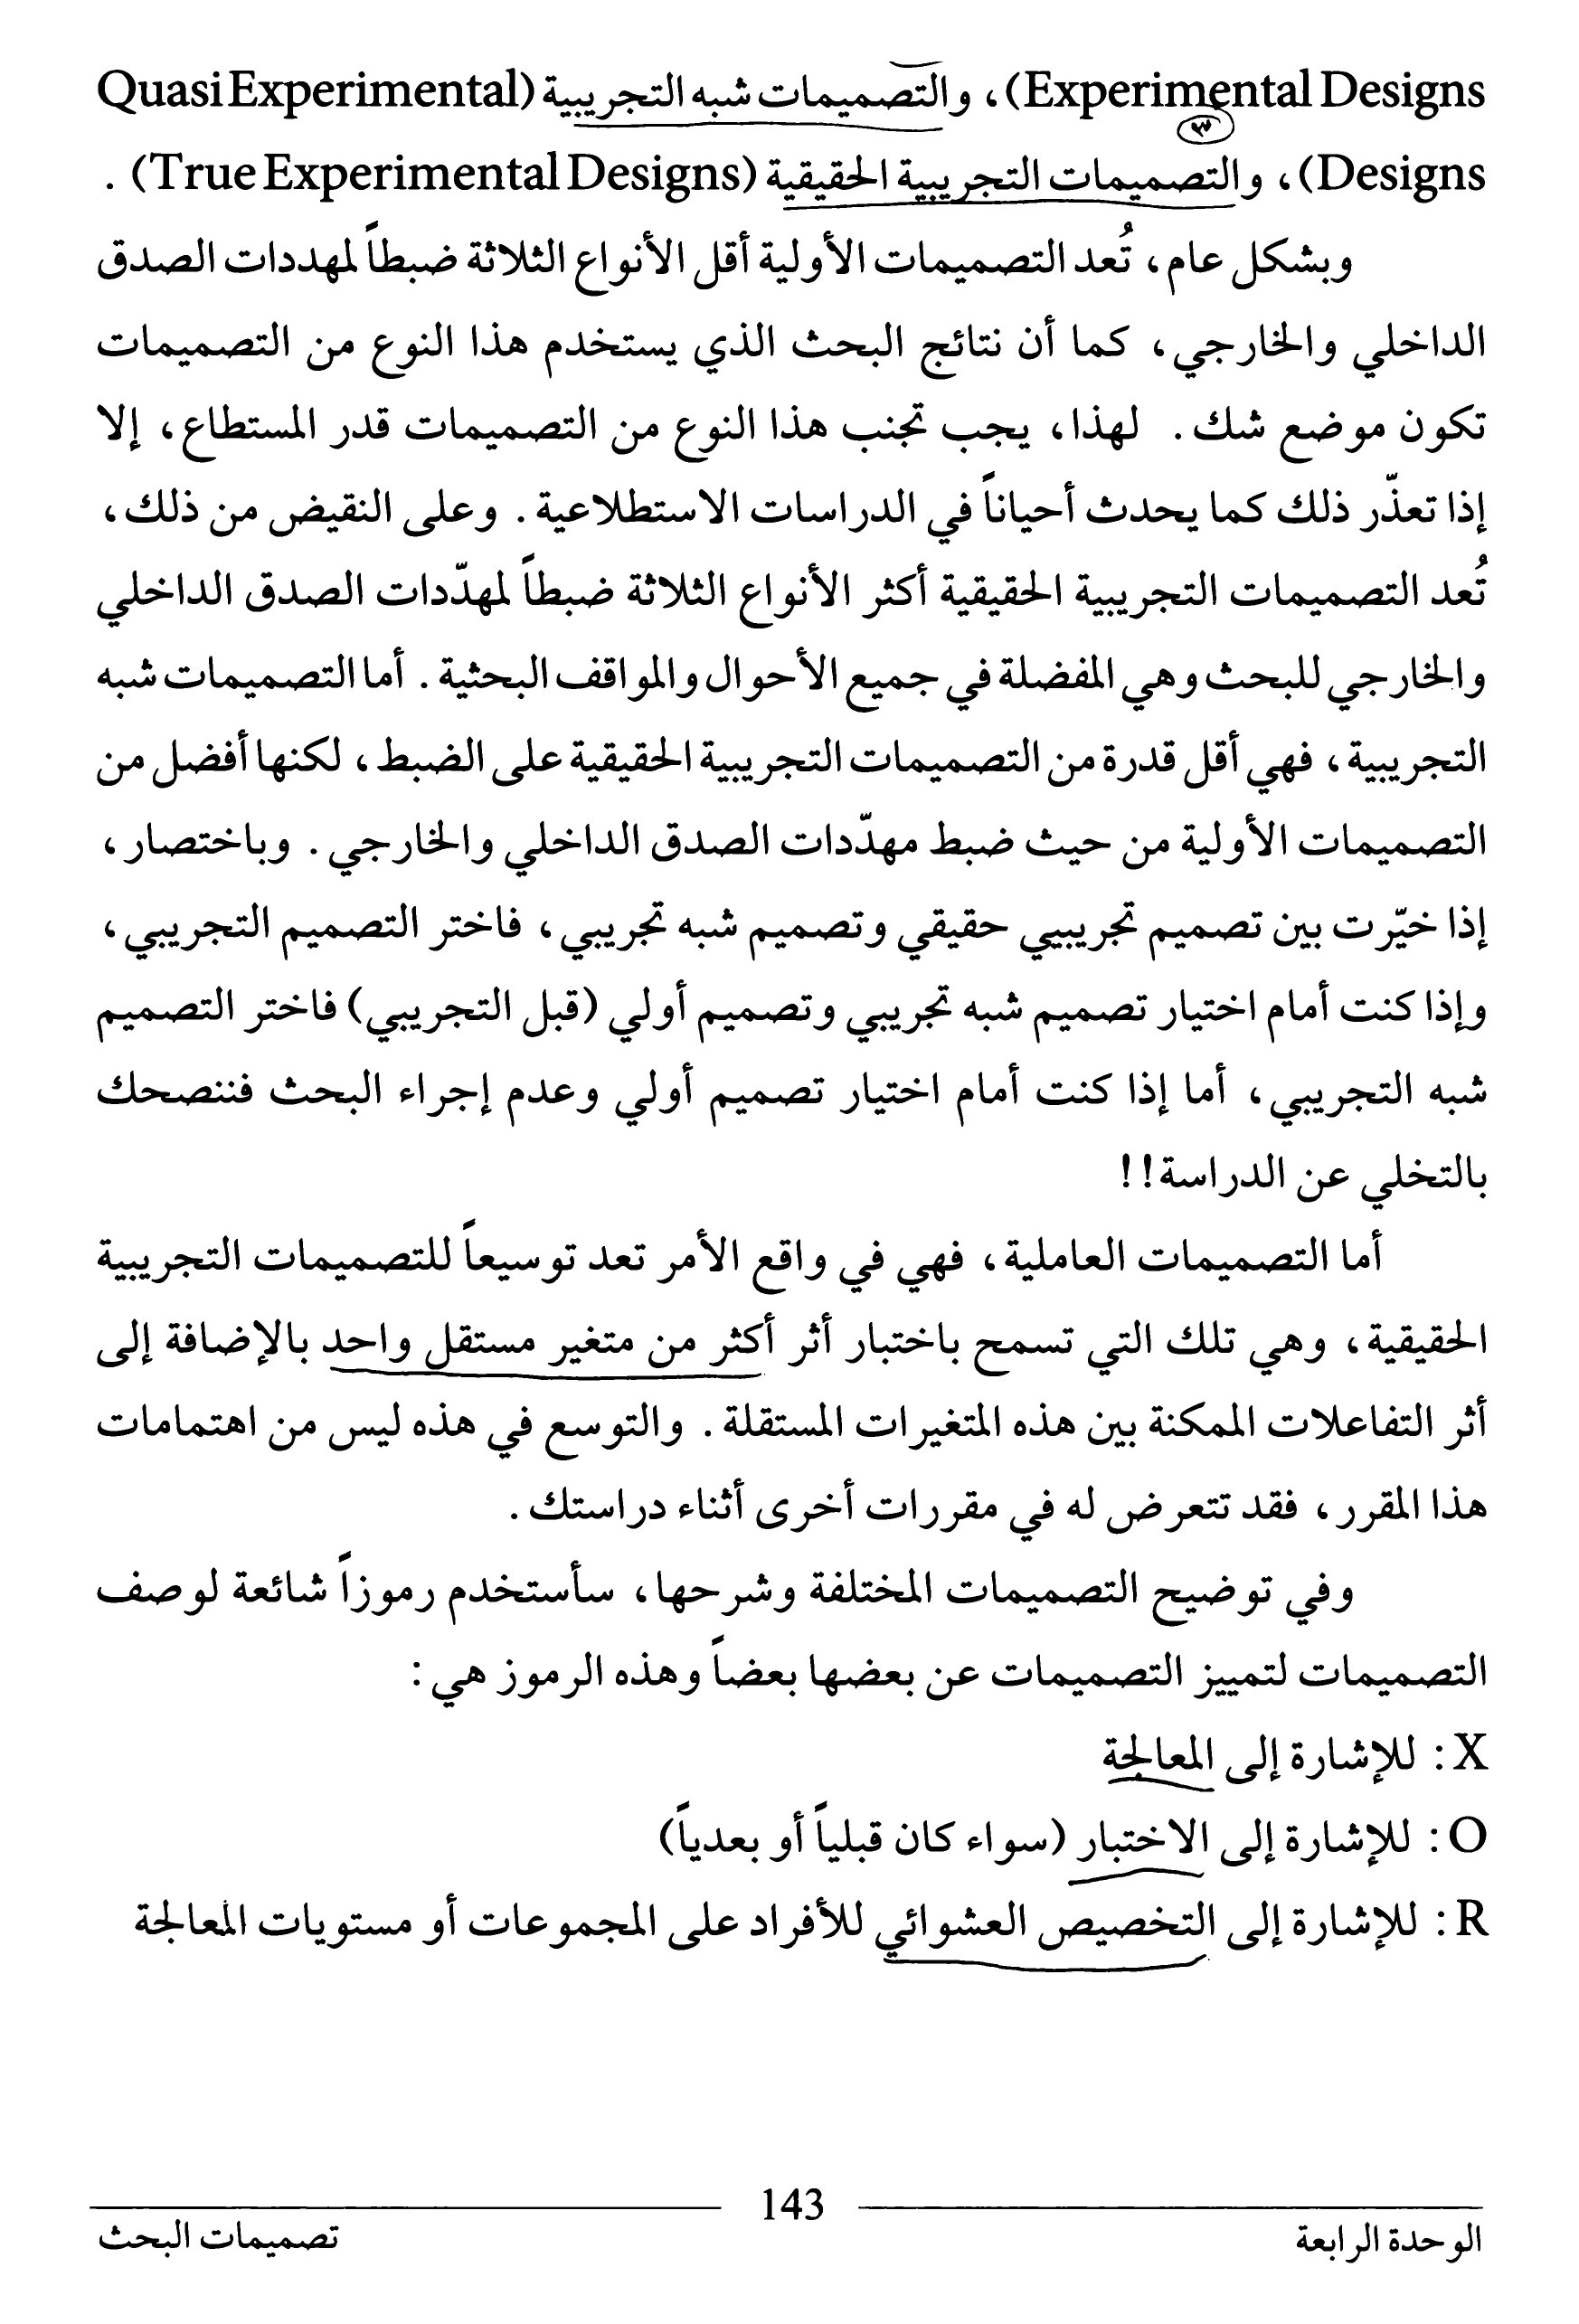 Experimental Designs)، والتصميمات شبه التجريبية (Quasi Experimental
٣
Designs)، والتصميمات التجريبية الحقيقية (True Experimental Designs) .
وبشكل عام، تُعد التصميمات الأولية أقل الأنواع الثلاثة ضبطاً لمهددات الصدق
الداخلي والخارجي، كما أن نتائج البحث الذي يستخدم هذا النوع من التصميمات
تكون موضع شك. لهذا، يجب تجنب هذا النوع من التصميمات قدر المستطاع، إلا
إذا تعذّر ذلك كما يحدث أحياناً في الدراسات الاستطلاعية. وعلى النقيض من ذلك،
تُعد التصميمات التجريبية الحقيقية أكثر الأنواع الثلاثة ضبطاً لمهدّدات الصدق الداخلي
والخارجي للبحث وهي المفضلة في جميع الأحوال والمواقف البحثية. أما التصميمات شبه
التجريبية، فهي أقل قدرة من التصميمات التجريبية الحقيقية على الضبط، لكنها أفضل من
التصميمات الأولية من حيث ضبط مهدّدات الصدق الداخلي والخارجي. وباختصار،
إذا خيّرت بين تصميم تجريبيي حقيقي وتصميم شبه تجريبي، فاختر التصميم التجريبي،
وإذا كنت أمام اختيار تصميم شبه تجريبي وتصميم أولي (قبل التجريبي) فاختر التصميم
شبه التجريبي، أما إذا كنت أمام اختيار تصميم أولي وعدم إجراء البحث فننصحك
بالتخلي عن الدراسة!!
أما التصميمات العاملية، فهي في واقع الأمر تعد توسيعاً للتصميمات التجريبية
الحقيقية، وهي تلك التي تسمح باختبار أثر أكثر من متغير مستقل واحد بالإضافة إلى
أثر التفاعلات الممكنة بين هذه المتغيرات المستقلة. والتوسع في هذه ليس من اهتمامات
هذا المقرر، فقد تتعرض له في مقررات أخرى أثناء دراستك.
وفي توضيح التصميمات المختلفة وشرحها، سأستخدم رموزاً شائعة لوصف
التصميمات لتمييز التصميمات عن بعضها بعضاً وهذه الرموز هي:
X: للإشارة إلى المعالجة
O: للإشارة إلى الاختبار (سواء كان قبلياً أو بعدياً)
R: للإشارة إلى التخصيص العشوائي للأفراد على المجموعات أو مستويات المعالجة
143
الوحدة الرابعة
تصميمات البحث